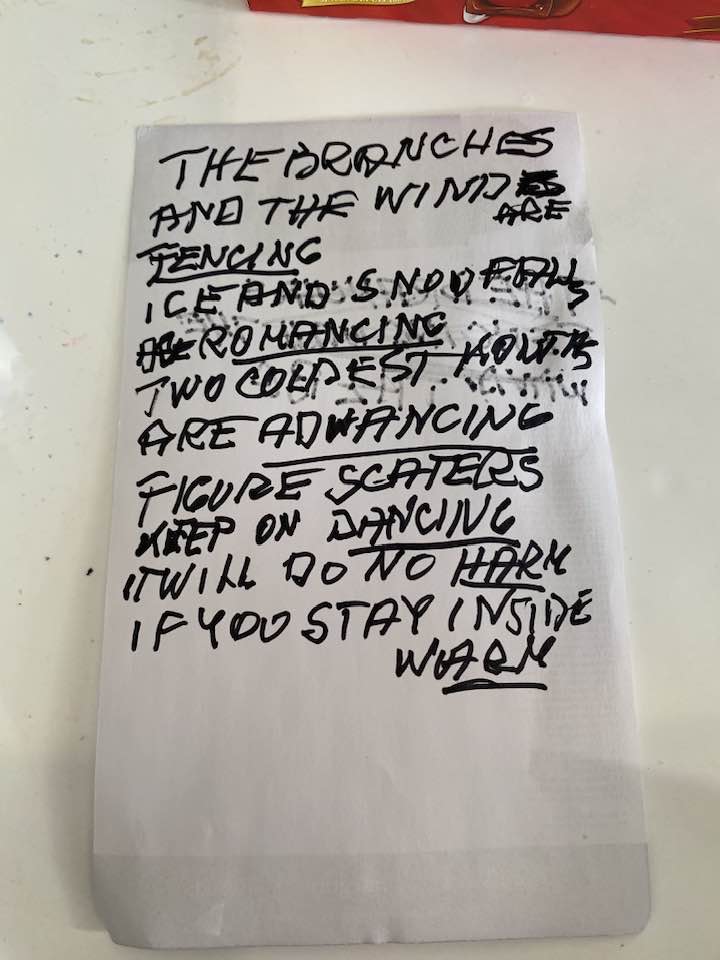 THE BRANCHES
AND THE WIND
ARE
FENCING
ICE AND SNOW FALLS
ROMANCING
TWO COLDEST
ARE ADWANCING
FIGURE SCATERS
KEEP ON DANCING
IT WILL DO NO HARM
IF YOU STAY INSIDE
WARM